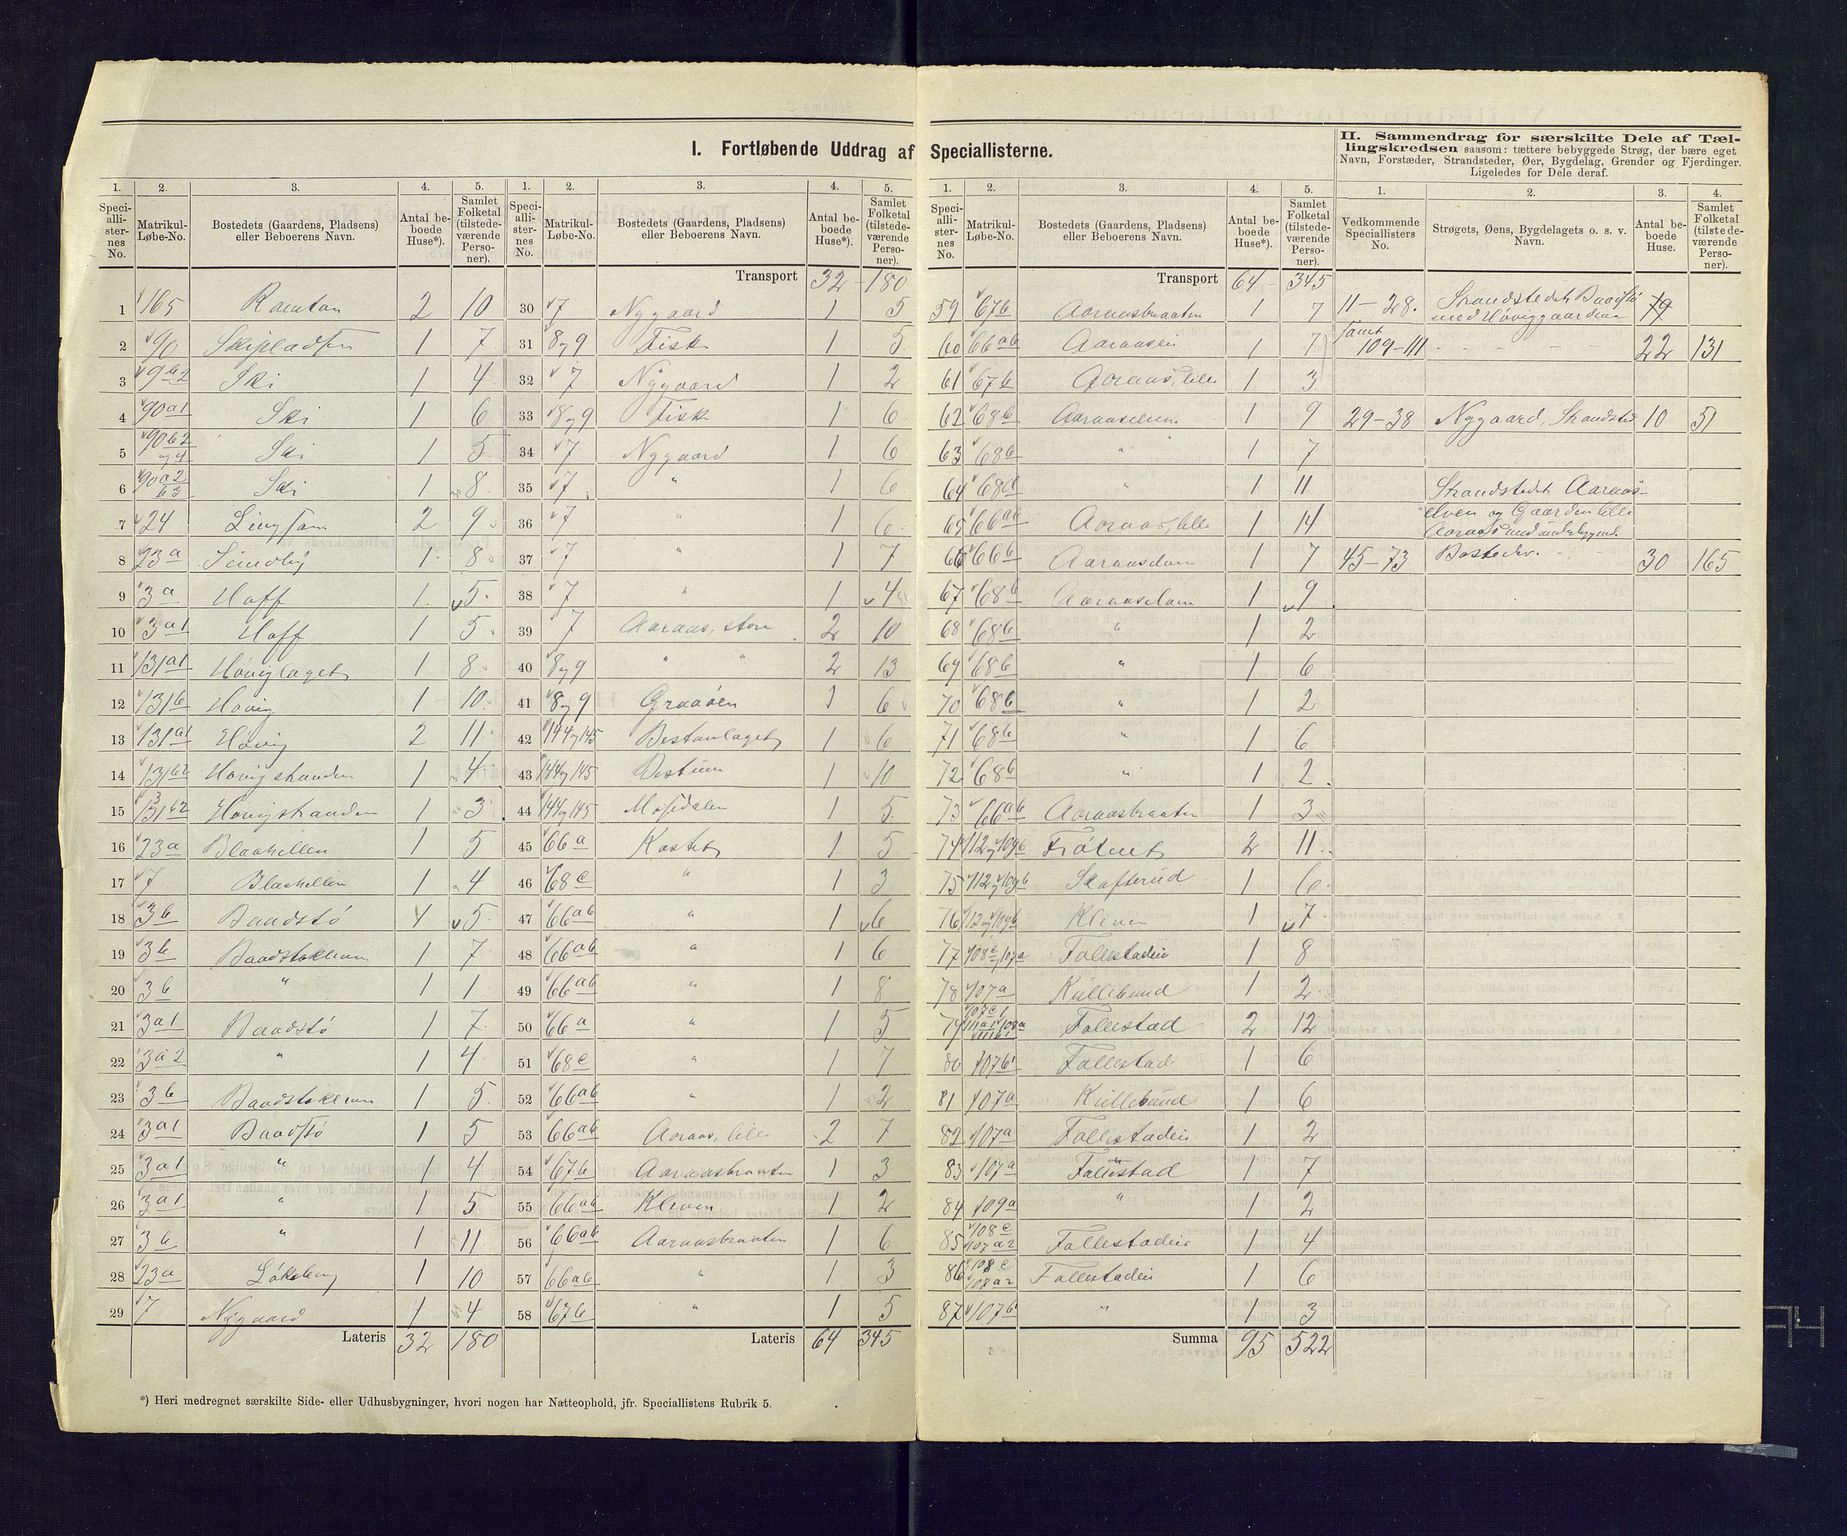 I. Fortløbende Uddrag af Speciallisterne.
II. Sammendrag for særskilte Dele af Tæl-
lingskredsen saasom: tættere bebyggede Strøg, der bære eget
Navn, Forstæder, Strandsteder, Øer, Bygdelag, Grender og Fjerdinger.
Ligeledes for Dele deraf.
1. 2. 3. 4. 5.
Speciallisternes No. Matrikul-Løbe-No. Bostedets (Gaardens, Pladsens) eller Beboerens Navn. Antal beboede Huse*). Samlet Folketal (tilstedeværende Personer).
1 165 2 10
2 90 Skipladsen 1 7
3 Ski 1 4
4 90a1 Ski 1 6
5 90b2 Ski 1 5
6 90a2 b3 Ski 1 8
7 24 2 9
8 23a 1 8
9 3a Hoff 1 5
10 3a1 Hoff 1 5
11 131a1 Høviglaget 1 8
12 131b Høvig 1 10
13 131a1 Høvig 2 11
14 131b2 Høvigstranden 1 4
15 131b2 Høvigstranden 1 3
16 23a Blaakellen 1 5
17 7 Blaakellen 1 4
18 3b Baadstø 1 5
19 3b 1 7
20 3b " 1 1
21 3a1 Baadstø 1 7
22 3a2 " 1 4
23 3b 1 5
24 3a1 Baadstø 1 5
25 3a1 " 1 4
26 3a1 " 1 5
27 3b " 1 11
28 23a 1 10
29 7 Nygaard 1 4
Lateris 32 180
*) Heri medregnet særskilte Side- eller Udhusbygninger, hvori nogen har Natteophold, jfr. Speciallistens Rubrik 5.
1. 2. 3. 4. 5.
Speciallisternes No. Matrikul-Løbe-No. Bostedets (Gaardens, Pladsens) eller Beboerens Navn. Antal beboede Huse*). Samlet Folketal (tilstedeværende Personer).
Transport 32 180
30 7 Nygaard 1 5
31 8og9 Fisk 1 5
32 7 Nygaard 1 2
33 8og9 Fisk 1 6
34 7 Nygaard 1 6
35 7 " 1 6
36 7 " 1 6
37 7 " 1 7
38 7 " 1 4
39 7 Aaraas, store 2 10
40 8og9 " " 2 13
41 8og9 Graaøen 1 6
42 144og145 1 6
43 144og145 1 10
44 144og145 Mosdalen 1 5
45 66a Kastet 1 5
46 68c " 1 3
47 66ab " 1 6
48 66ab " 1 6
49 66ab " 1 8
50 66a " 1 5
51 68c " 1 7
52 66ab " 1 2
53 66ab Aaraas, lille 2 7
54 67b Aaraasbraaten 1 3
55 66ab Kleven 1 2
56 66ab Aaraasbraaten 1 6
57 66ab " 1 3
58 67b " 1 5
Lateris 64 345
1. 2. 3. 4. 5.
Speciallisternes No. Matrikul-Løbe-No. Bostedets (Gaardens, Pladsens) eller Beboerens Navn. Antal beboede Huse*). Samlet Folketal (tilstedeværende Personer).
Transport 64 345
59 67b Aaraasbraaten 1 7
60 66ab Aaraaseie 1 7
61 67b Aaraas, lille 1 3
62 68b Aaraaselven 1 9
63 68b " 1 7
64 68a " 1 11
65 66ab Aaraas, lille 1 14
66 66b 1 7
67 68b 1 9
68 68b " 1 2
69 68b " 1 6
70 68c " 1 2
71 68b " 1 6
72 68b " 1 2
73 66ab Aaraasbraaten 1 3
74 112og109b 2 11
75 112og109b Skafterud 1 6
76 112og109b Kleven 1 7
77 108c, 107a Follestadeie 1 8
78 107a Kullebund 1 2
79 107c1 111a1 108a 111b1 Follestad 2 12
80 107b1 Follestad 1 6
81 107a Kullebund 1 6
82 107a Follestadeie 1 2
83 107a Follestad 1 7
84 109a " 1 2
85 108c 107a2 Follestadeie 1 4
86 108c 108a2 Follestadeie 1 6
87 107b1 " 1 3
Summa 95 522
1. 2. 3. 4.
Vedkommende Speciallisters No. Strøgets, Øens, Bygdelagets o. s. v. Navn. Antal beboede Huse. Samlet Folketal (tilstedeværende Personer).
11-28. Strandstedet Baadstø
samt med Høviggaardene 19
109-111 - - - 22 131
29-38 Nygaard, Strandsted 10 51
Strandstedet Aaraas-
elven og Gaarden lille
Aaraas med underliggende
45-73 Bosteder. 30 165